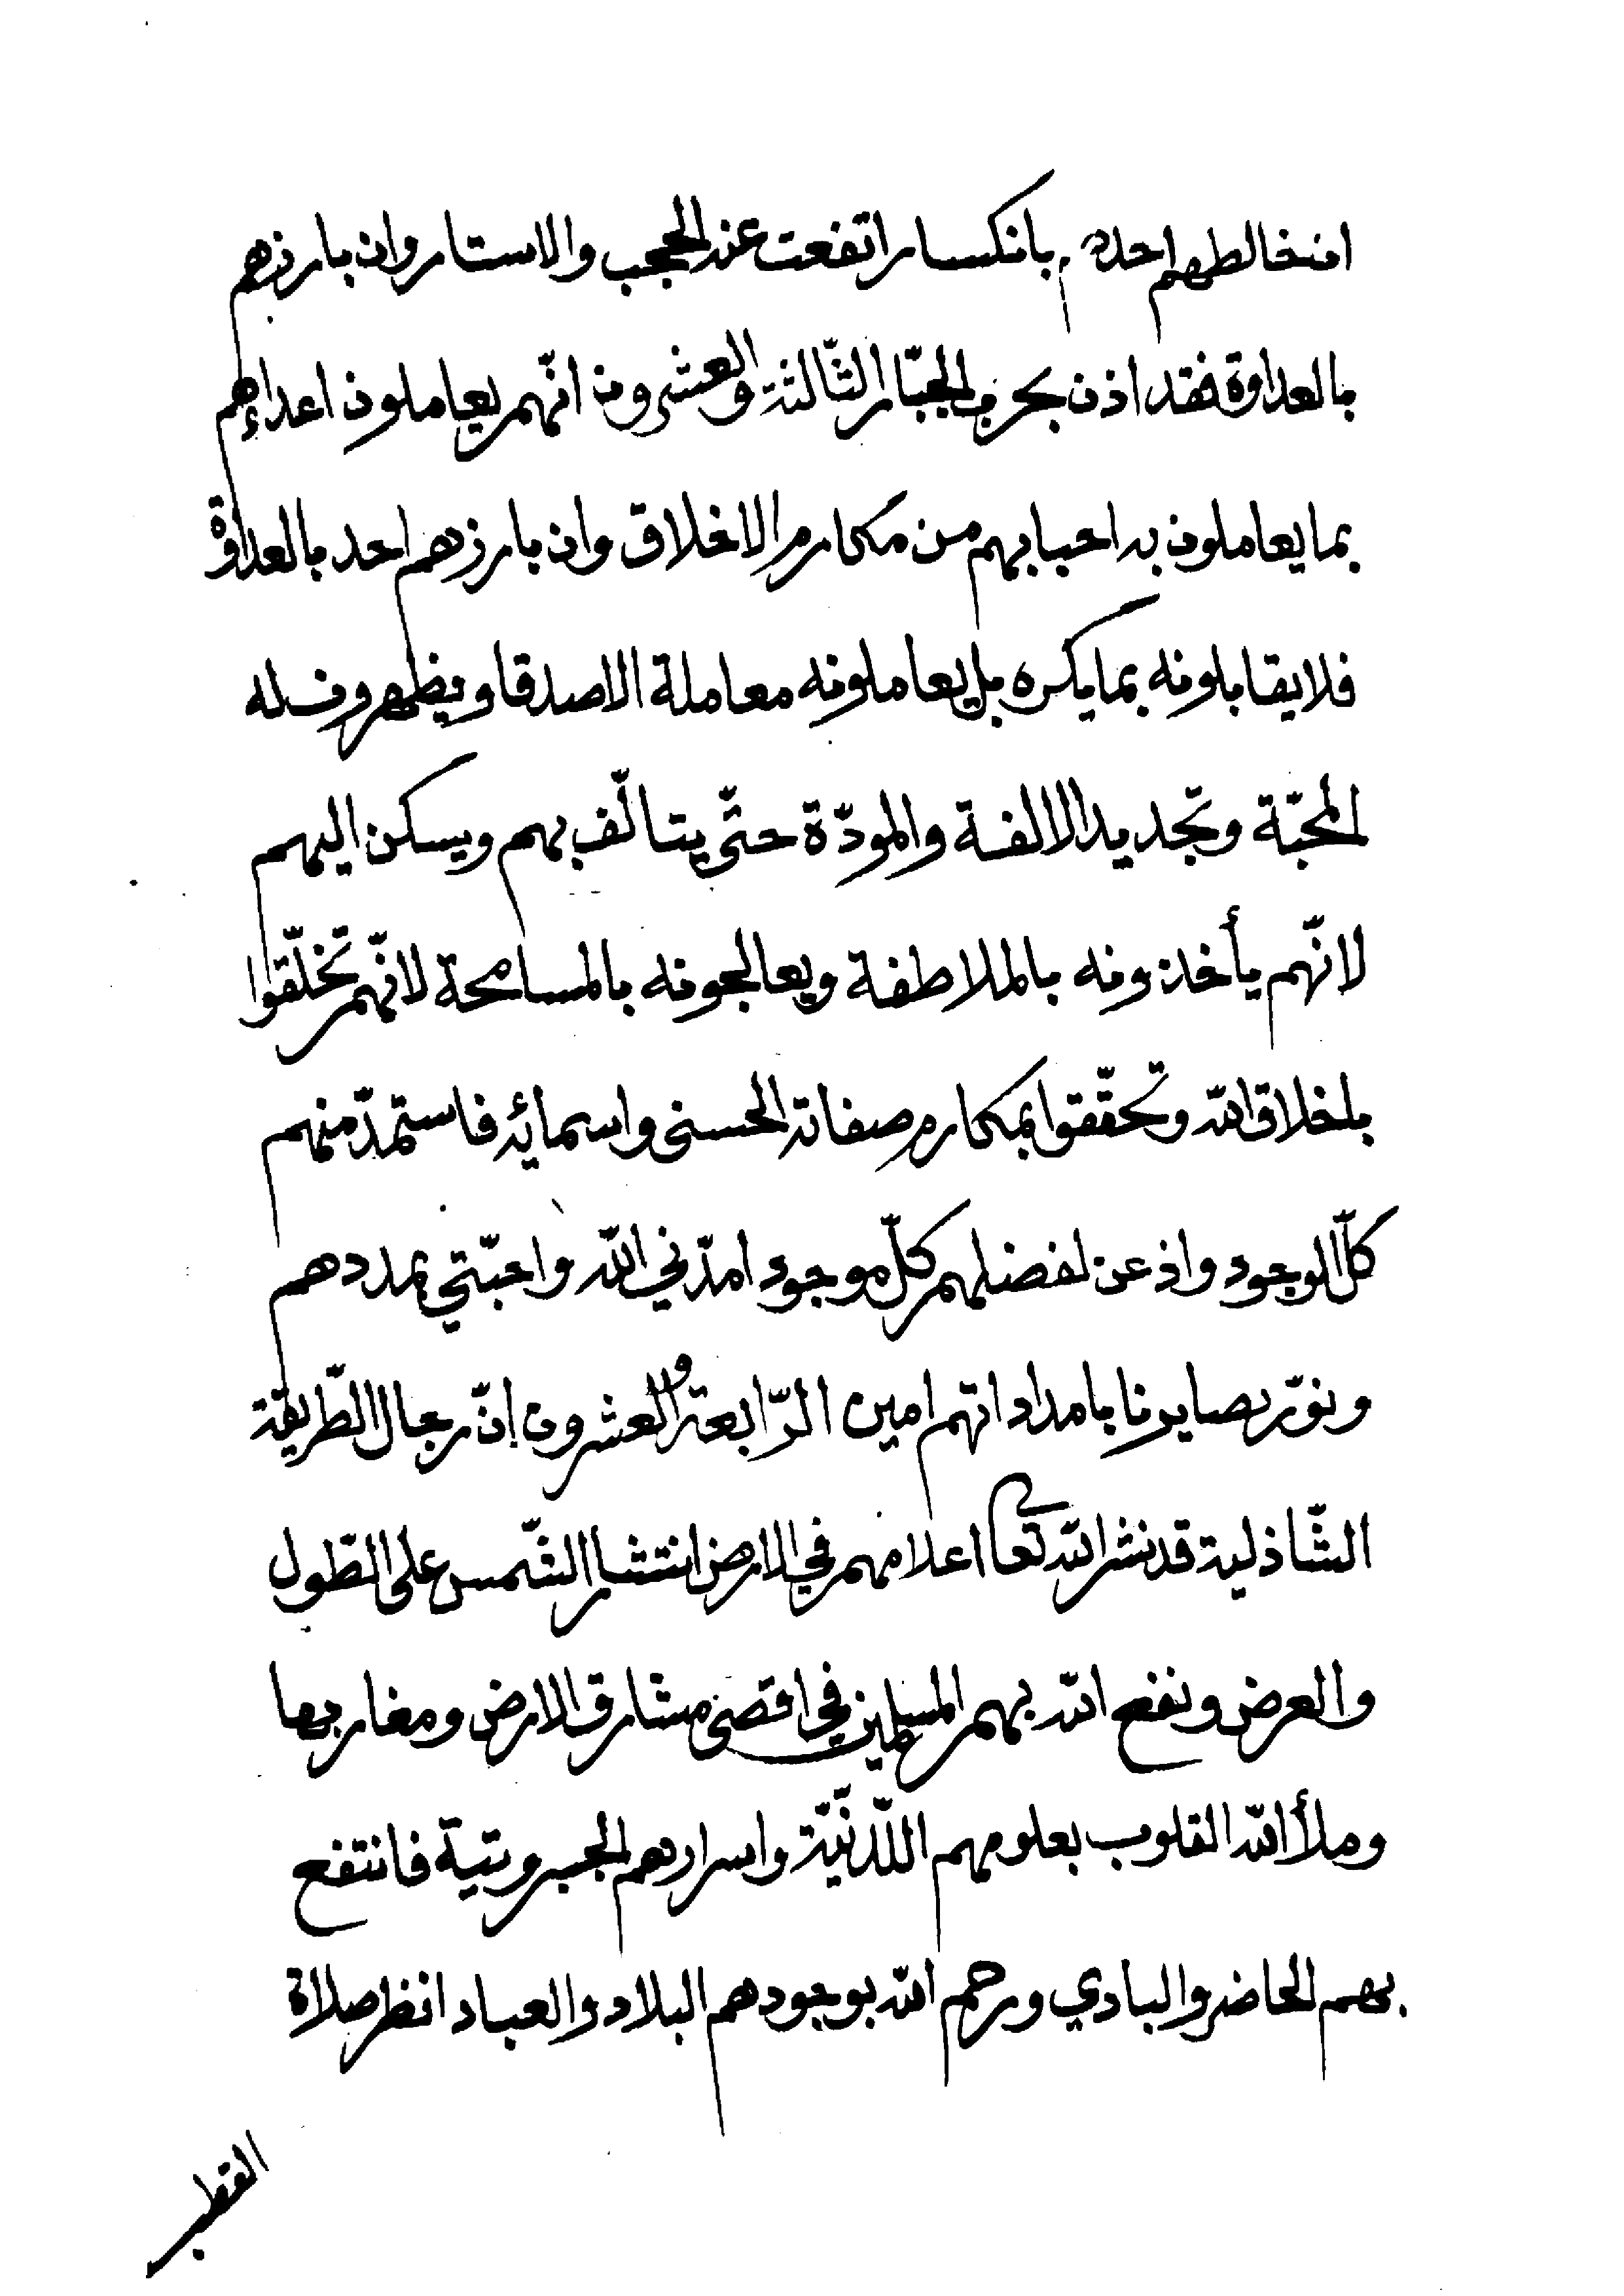 ان خالطهم احد بانكسار اتفعت عند الحجب والاستار وان بارزهم
بالعداوة فقد اذن بحرب الجبّار الثّالثة والعشرون انّهم يعاملون اعداءهم
بما يعاملون به احبابهم من مكارم الاخلاق وان بارزهم احد بالعداوة
فلا يقابلونه بما يكره بل يعاملونه معاملة الاصدقا ويظهرون له
المحبّة وتجديد الالفة والمودّة حتّى يتالّف بهم ويسكن اليهم
لانّهم يأخذونه بالملاطفة ويعالجونه بالمسامحة لانّهم تخلّقوا
باخلاق اللّه وتحقّقوا بمكارم صفاته الحسنى واسمائه فاستمدّ منهم
كلّ الوجود واذعن لفضلهم كلّ موجود امدّني اللّه واحبّتي بمددهم
ونوّر بصايرنا بامداداتهم امين الرّابعة والعشرون إنّ رجال الطّريقة
الشّاذلية قد نشر اللّه تعا اعلامهم في الارض انتشار الشّمس على الطّول
والعرض ونفع اللّه بهم المسلمين في اقصى مشارق الارض ومغاربها
وملأ اللّه القلوب بعلومهم اللّدنّيّة واسرارهم الجبروتية فانتفع
بهم الحاضر والبادي ورحم اللّه بوجودهم البلاد والعباد انظر صلاة
القطب